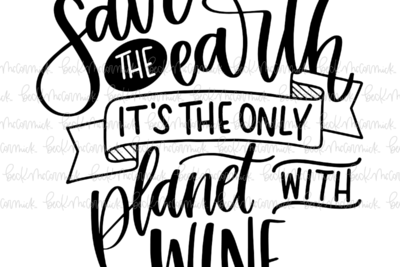 Save
THE earth
IT'S THE ONLY
planet WITH
WINE